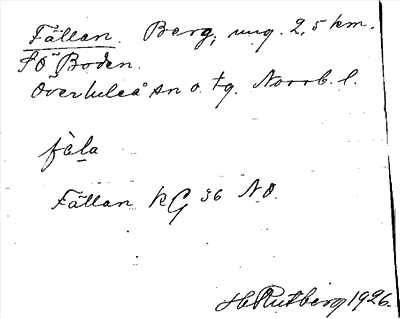 Fällan. Berg, ung. 2,5 km.
SO Boden.
Överluleå sn o. tg. Norrb. l.
fäla
Fällan KG 36 NO.
H Rutberg 1926.